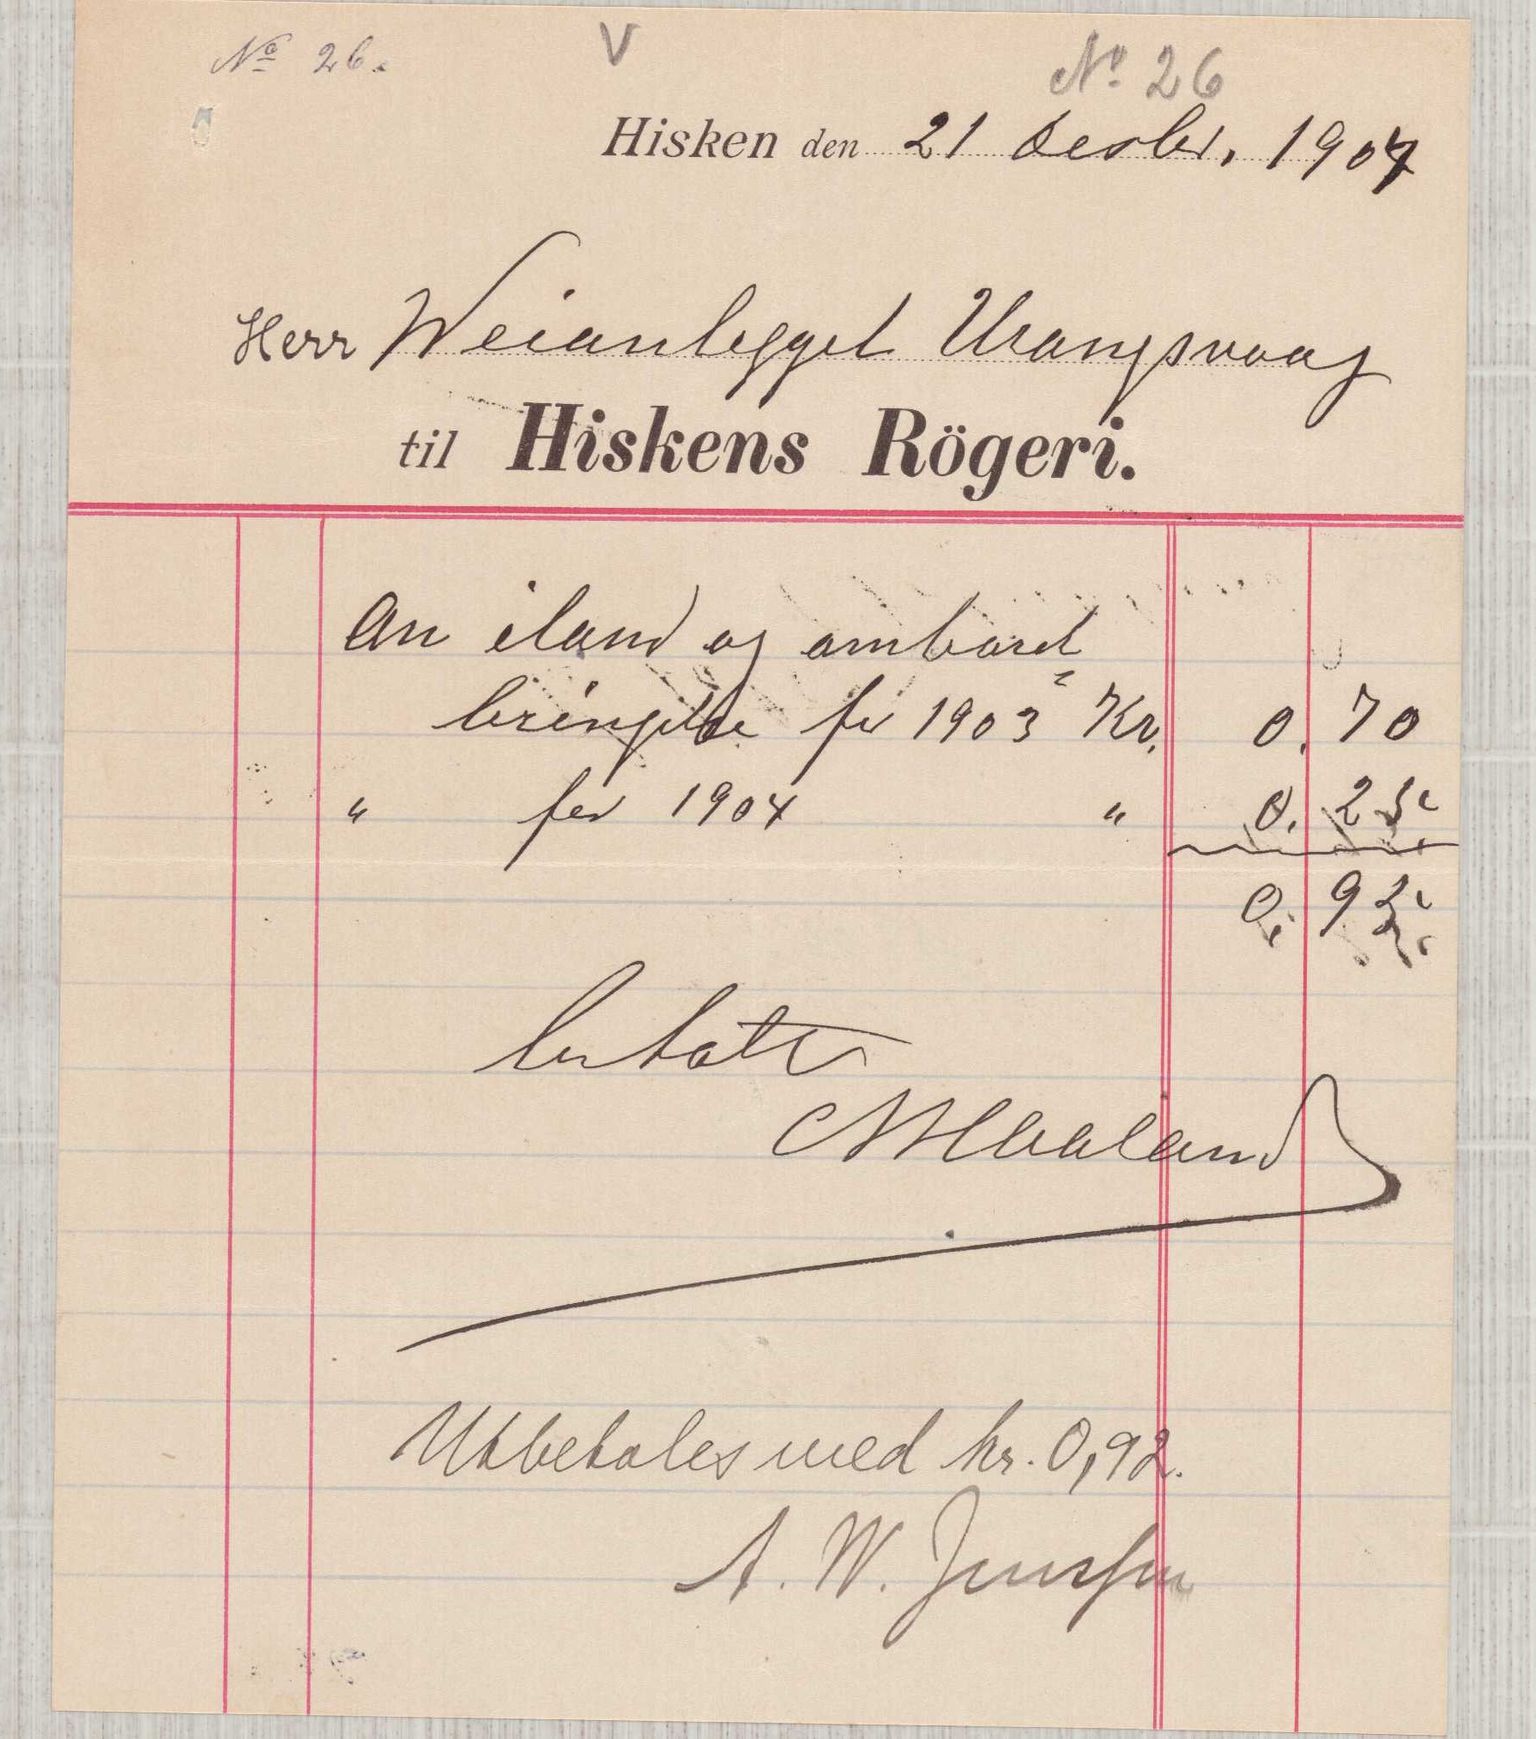 No 26.
V
No 26
Hisken den 21 Desbr. 1904
Herr Veianlegget Urangsvaag
til Hiskens Rögeri.
An iland og ombord
bringelse for 1903 Kr. 0. 70
" for 1904 " 0. 22
0. 92
betalt
Haaland
Utbetales med kr. 0,92.
A. W. Jenssen